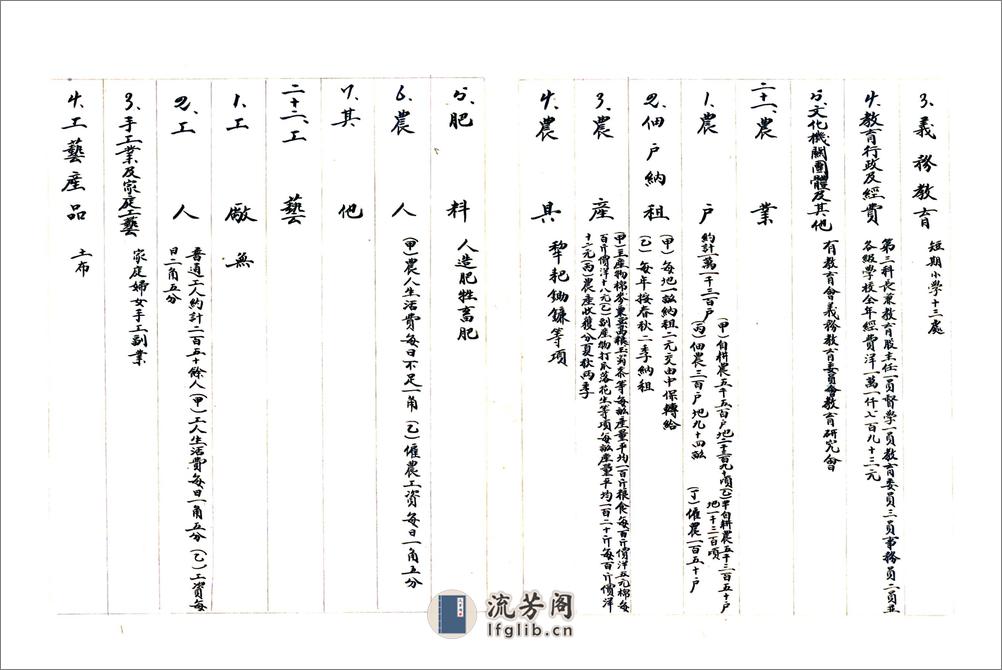 3、義務教育 短期小學十三處
4、教育行政及經費 第三科長兼教育股主任一員督學一員教育委員三員事務員二員並
各級學校全年經費洋一萬一仟七百九十三元
5、文化機關團體及其他 有教育會義務教育委員會教育研究會
二十一、農業
1、農戶 約計一萬一千三百戶
(甲)自耕農五千五百戶地 (乙)半自耕農五千三百五十戶
地一千二百頃
(丙)佃農三百戶地九十四畝 (丁)僱農一百五十戶
2、佃戶納租 (甲)每地一畝納租二元交由中保轉給
(乙)每年按春秋二季納租
3、農產 (甲)主產物棉麥粟 高粮玉蜀黍等每畝產量平均一百斤粮食每百斤價洋五元棉每
百斤價洋十八元(乙)副產物打瓜落花生等項每畝產量平均一百二十斤每百斤價洋
十二元(丙)農產收獲分夏秋兩季
4、農具 犂耙鋤鐮等項
5、肥料 人造肥牲畜肥
6、農人 (甲)農人生活費每日不足一角(乙)僱農工資每日一角五分
7、其他
二十二、工藝
1、工廠 無
2、工人 普通工人約計二百五十餘人(甲)工人生活費每日一角五分(乙)工資每
日二角五分
3、手工業及家庭工藝 家庭婦女手工副業
4、工藝產品 土布
流芳阁
lfglib.cn